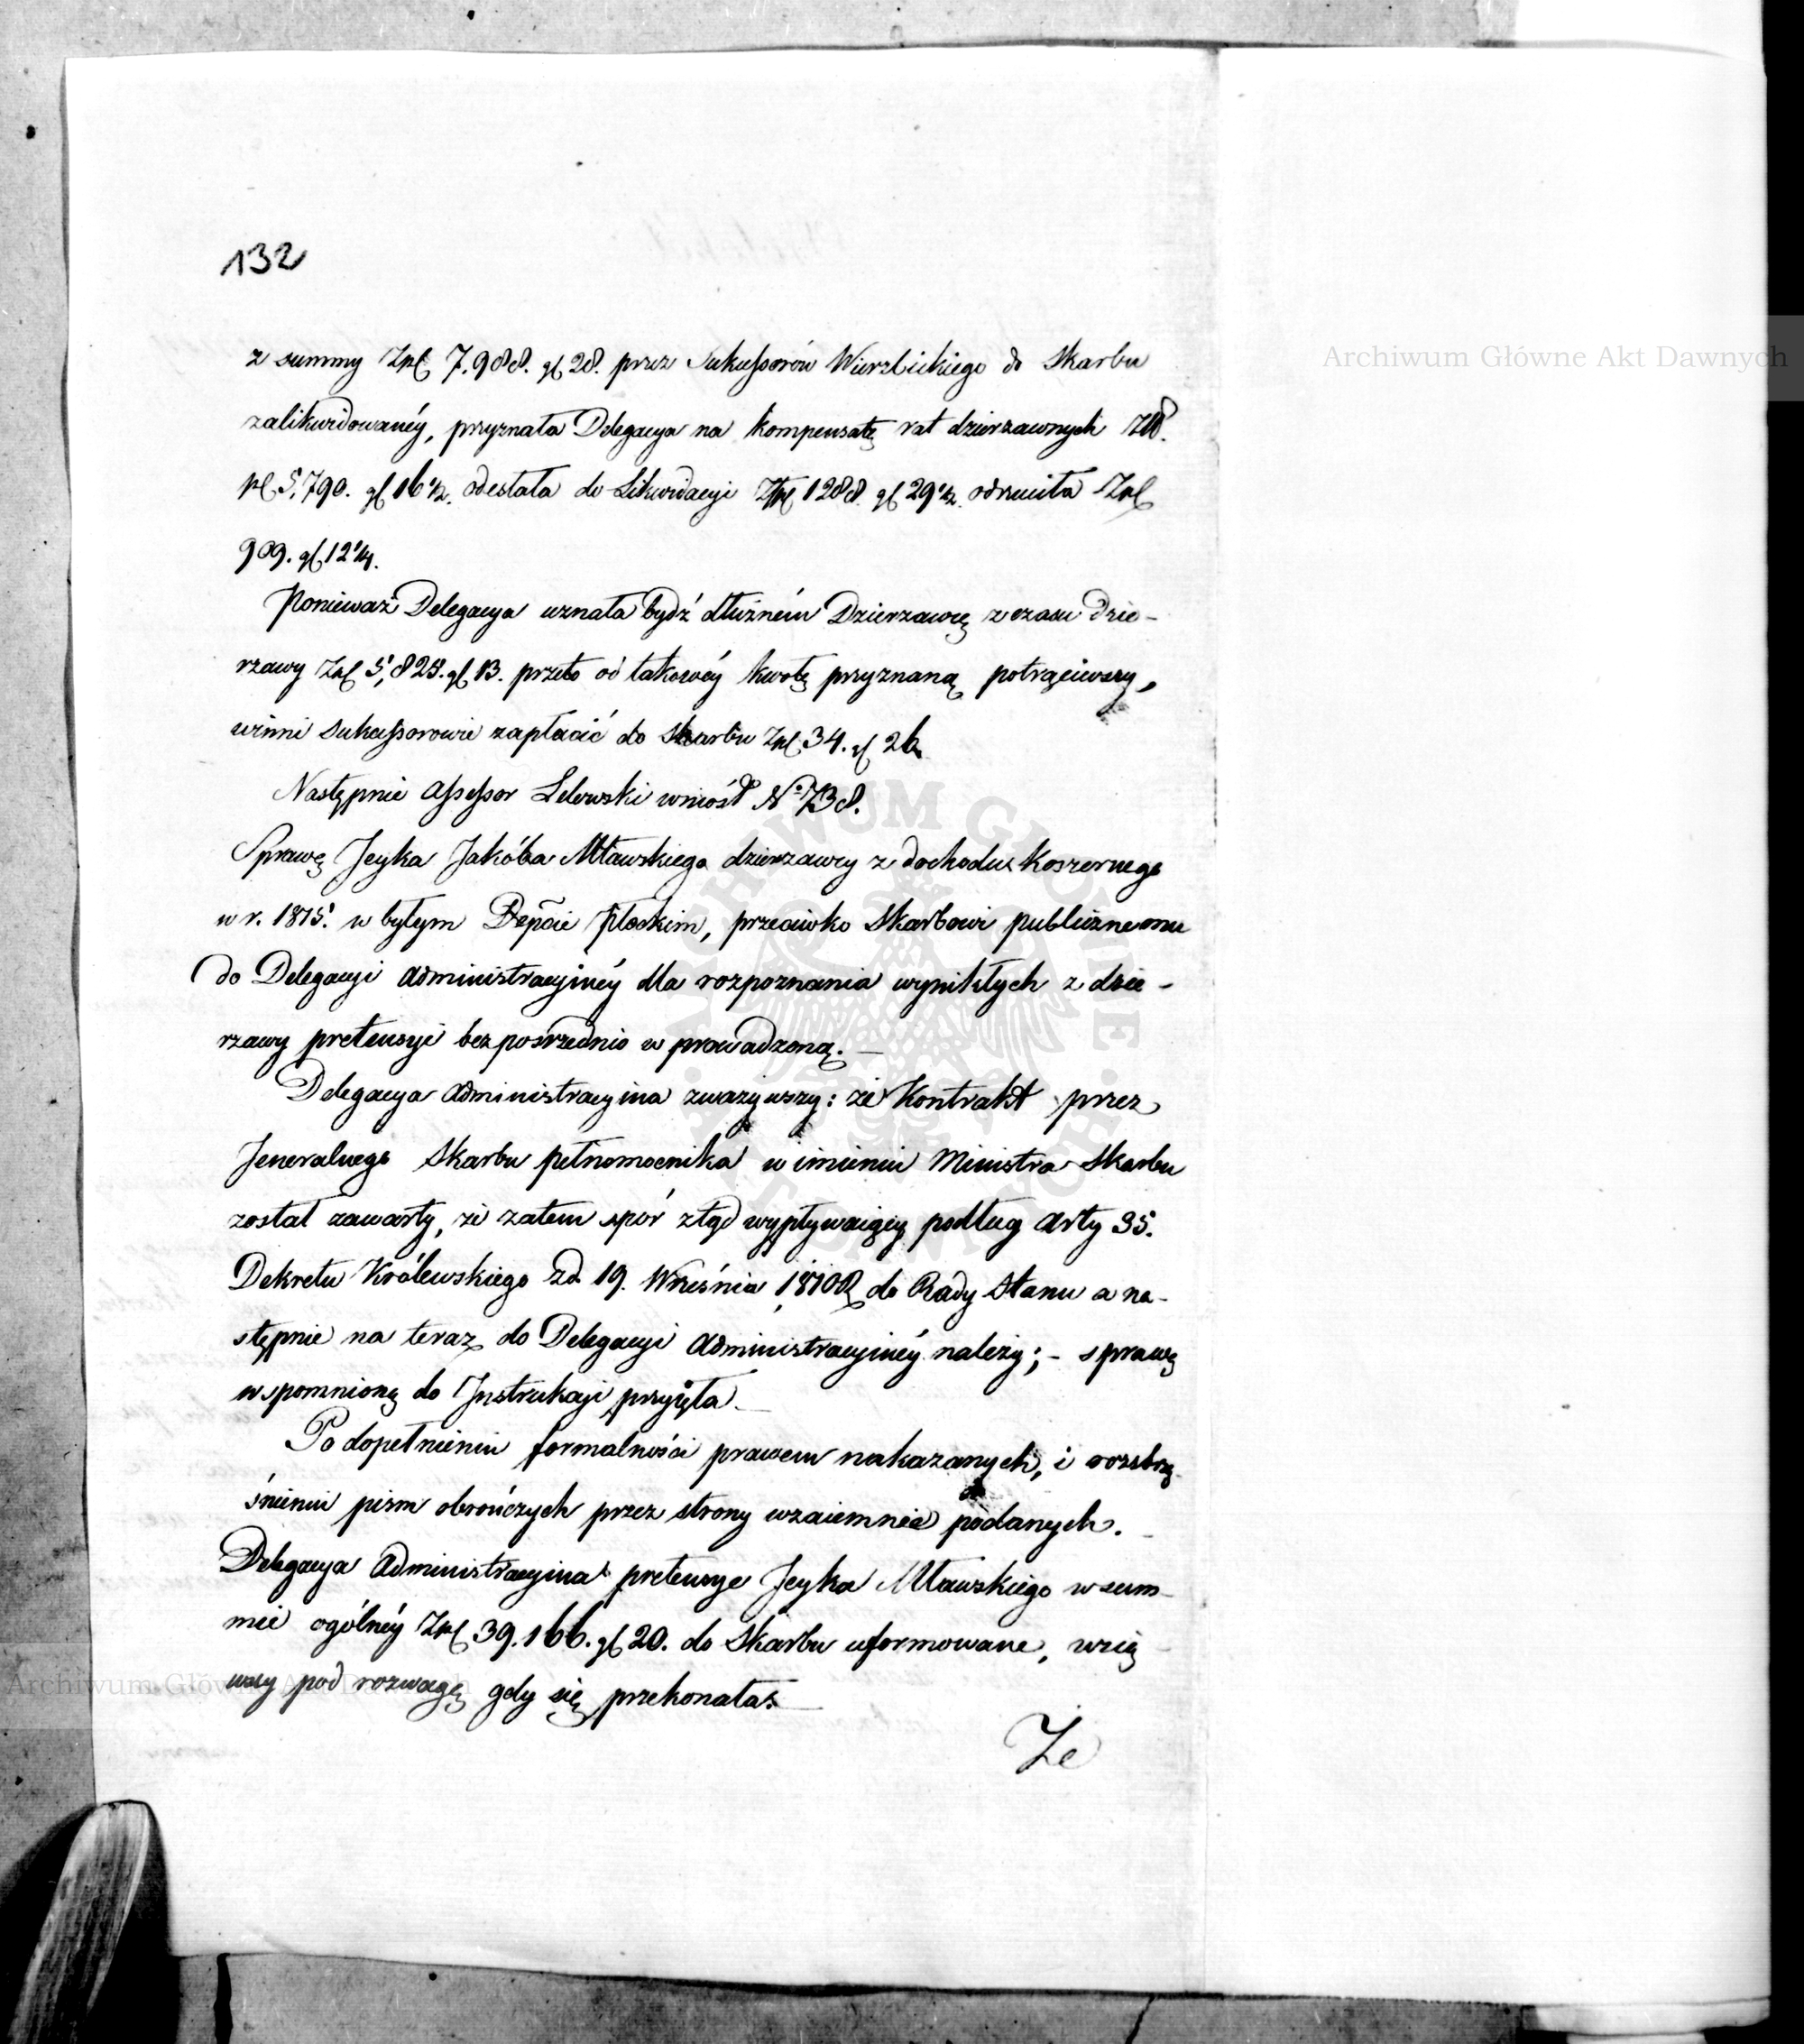 132
z summy Zpł 7.988. gł 28. przez Sukcessorów Wierzbickiego do Skarbu
zalikwidowanéy, przyznała Delegacya na kompensatę rat dzierzawnych Złł.
pł 5,790. gł 16½. odesłała do Likwidacyi Złpł 1288. gł 29½. odrzuciła Zpł
909. gł 12¼.
Ponieważ Delegacya uznała bydź dłużném Dzierzawcę z czasu dzie-
rzawy Zpł 5,825. gł 13. przeto od takowéy kwotę przyznaną potrąciwszy,
winni sukcessorowie zapłacić do skarbu Zpł 34. gł 26
Następnie assessor Lelowski wniósł No 738.
Sprawę Jcyka Jakóba Mławskiego dzierzawcy z dochodu Koszernego
w r. 1815. w byłym Depcie Płockim, przeciwko Skarbowi publicznemu
do Delegacyi administracyjnéy dla rozpoznania wynikłych z dzie-
rzawy pretensyi bezpośrzednio wprowadzoną. —
Delegacya administracyina zważywszy: że Kontrakt przez
Jeneralnego Skarbu pełnomocnika w imieniu Ministra Skarbu
został zawarty, że zatem spór ztąd wypływaiący podług arty 35.
Dekretu Królewskiego z d. 19. Września 1810 R do Rady Stanu a na-
stępnie na teraz do Delegacyi administracyinéy należy; - sprawę
wspomnioną do Instrukcyi przyięła. —
Po dopełnieniu formalności prawem nakazanych, i roztrzą-
śnieniu pism obrończych przez strony wzaiemnie podanych. —
Delegacya administracyina pretensye Jcyka Mławskiego w sum-
mie ogólnéy Zpł 39.166. gł 20. do Skarbu uformowane, wzią-
wszy pod rozwagę gdy się przekonała: —
Że
Archiwum Główne Akt Dawnych